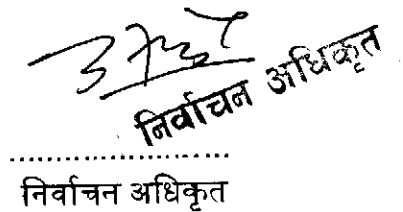 निर्वाचन अधिकृत
निर्वाचन अधिकृत